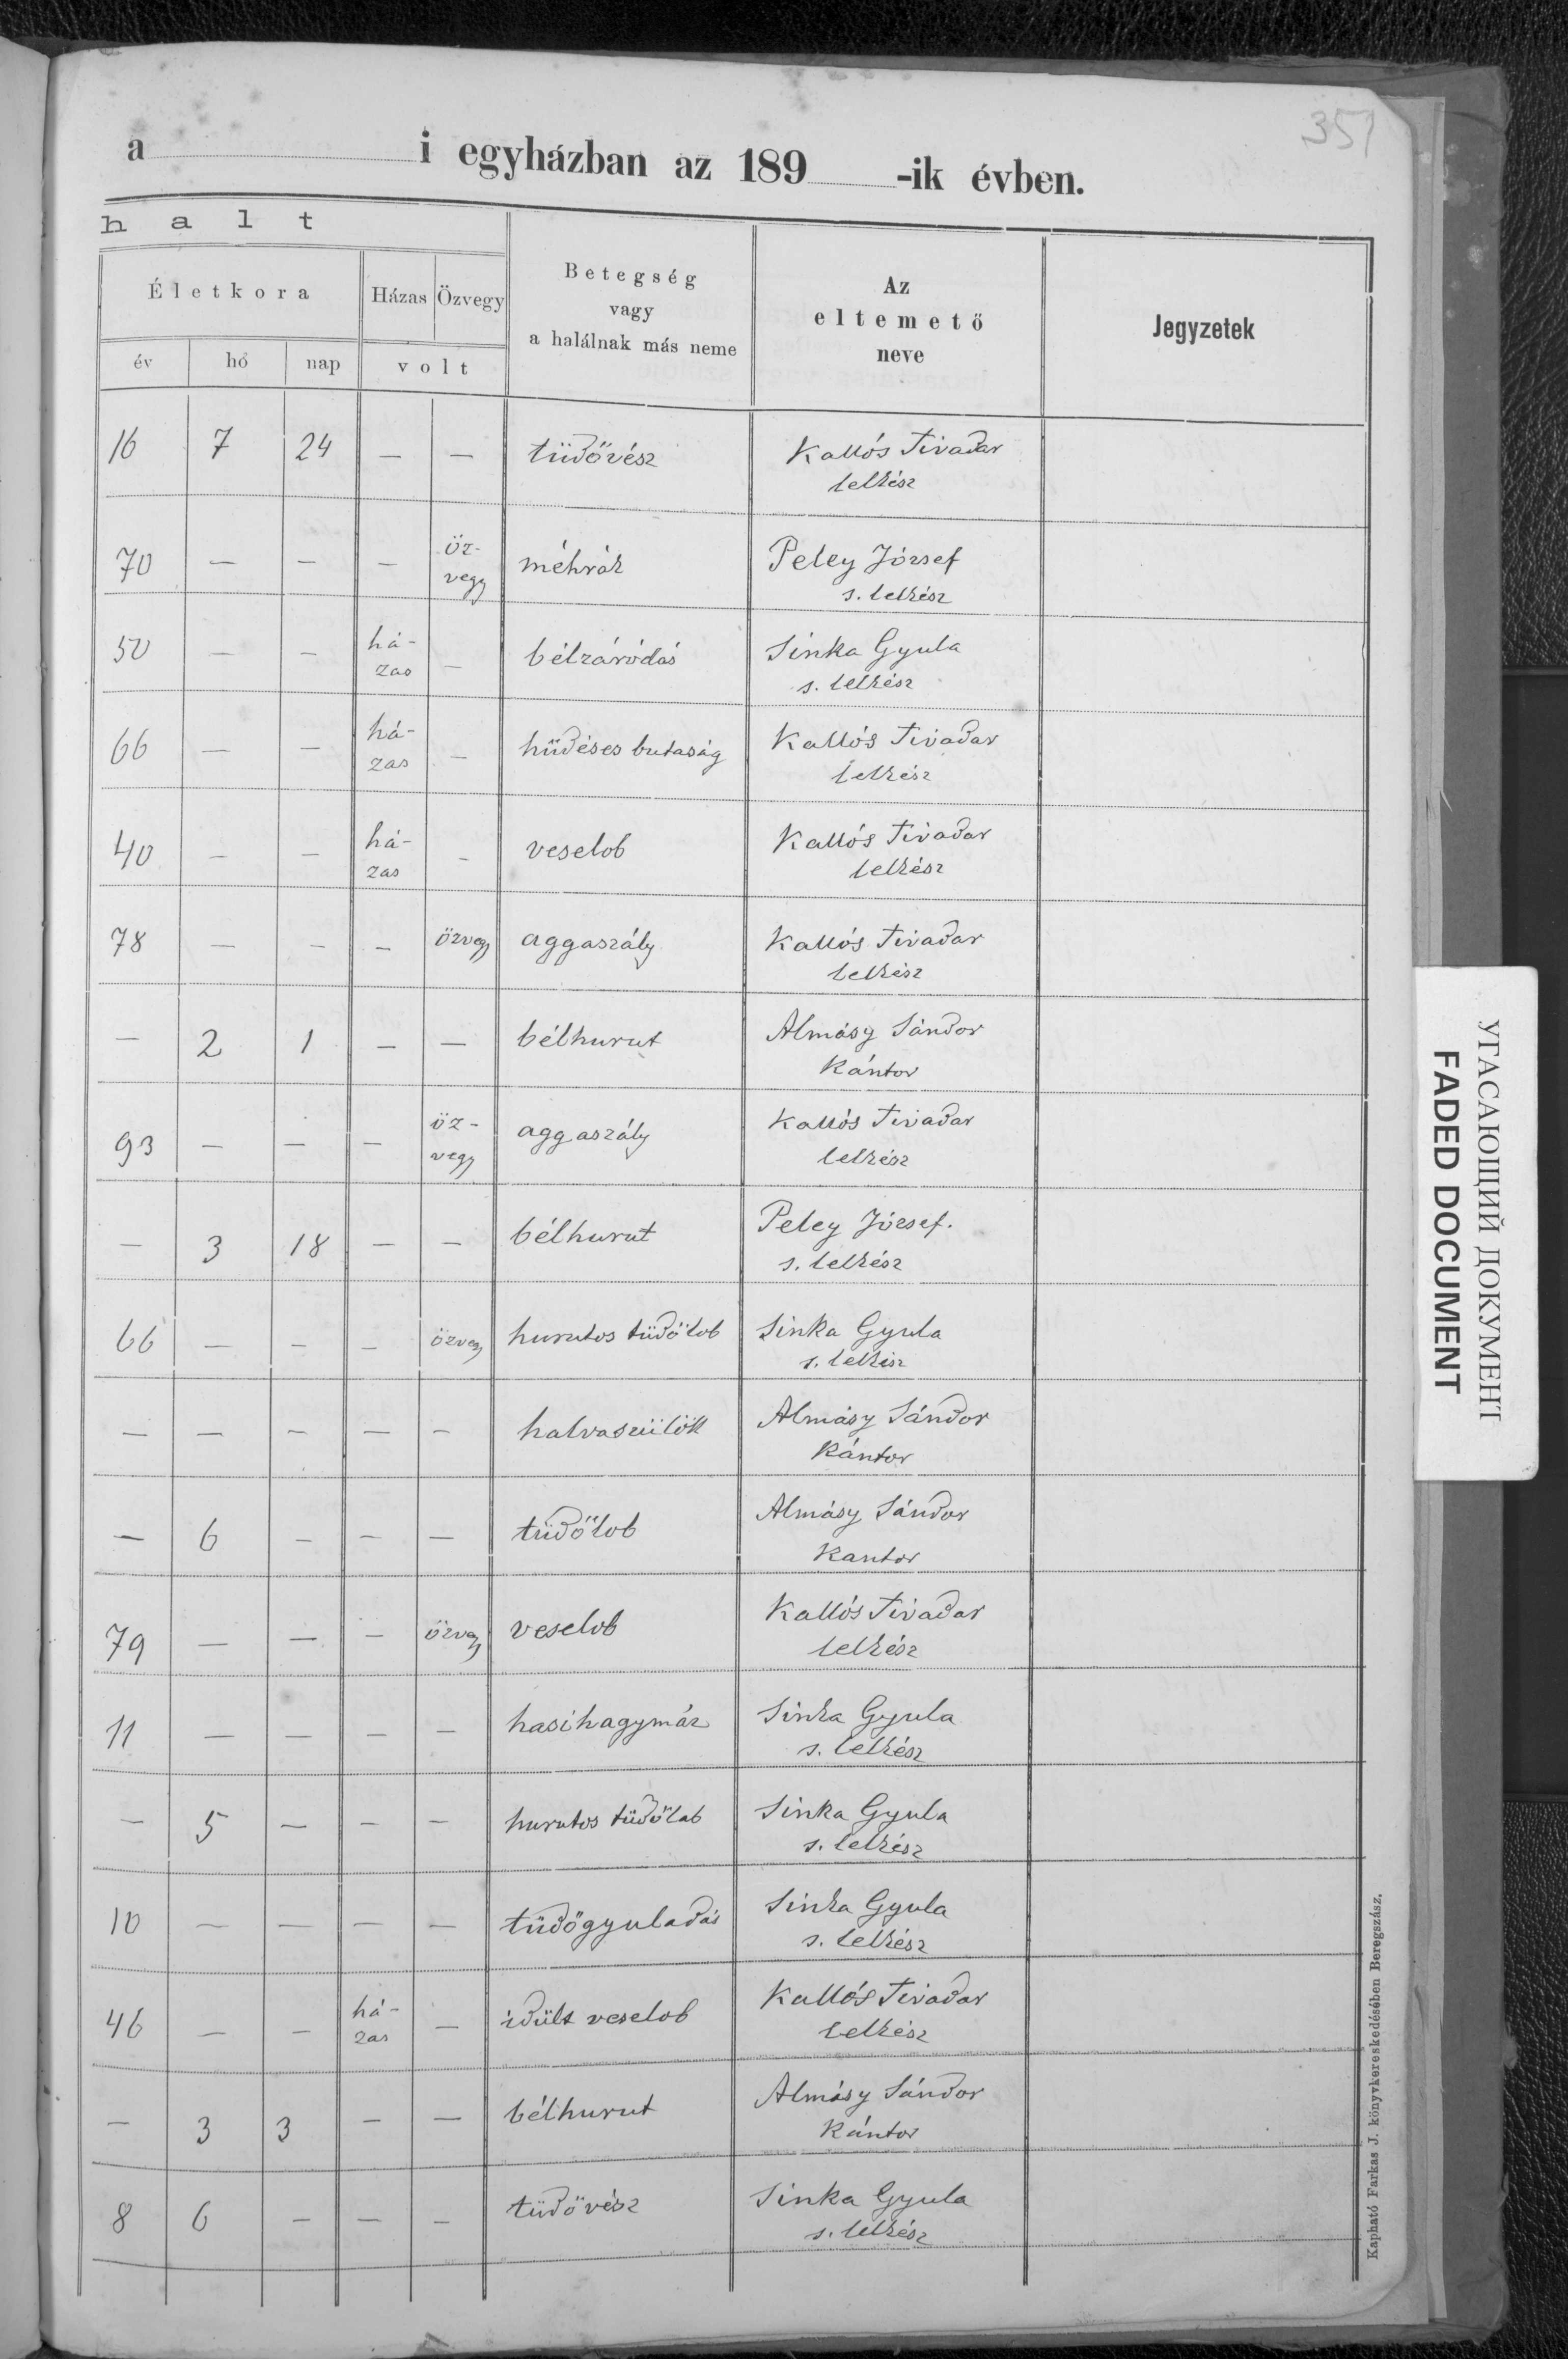 351
a i egyházban az 189 -ik évben.
halt
Életkora Házas Özvegy Betegség vagy a halálnak más neme Az eltemető neve Jegyzetek
év hó nap volt
16 7 24 — — tüdővész Kallós Tivadar
lelkész
70 — — — öz- méhrák Peley József
vegy s. lelkész
50 — — há- — bélzáródás Sinka Gyula
zas s. lelkész
66 — — há- — hüdéses butaság Kallós Tivadar
zas lelkész
40 — — há- — veselob Kallós Tivadar
zas lelkész
78 — — — özvegy aggaszály Kallós Tivadar
lelkész
— 2 1 — — bélhurut Almásy Sándor
Kántor
93 — — — öz- aggaszály Kallós Tivadar
vegy lelkész
— 3 18 — — bélhurut Peley József.
s. lelkész
66 — — — özvegy hurutos tüdőlob Sinka Gyula
s. lelkész
— — — — — halvaszülött Almásy Sándor
Kántor
— 6 — — — tüdőlob Almásy Sándor
Kantor
79 — — — özvegy veselob Kallós Tivadar
lelkész
11 — — — — hasihagymáz Sinka Gyula
s. lelkész
— 5 — — — hurutos tüdőlob Sinka Gyula
s. lelkész
10 — — — — tüdőgyuladás Sinka Gyula
s. lelkész
46 — — há- — idült veselob Kallós Tivadar
zas lelkész
— 3 3 — — bélhurut Almásy Sándor
Kántor
8 6 — — — tüdővész Sinka Gyula
s. lelkész
Kapható Farkas J. könyvkereskedésében Beregszász.
УГАСАЮЩИЙ ДОКУМЕНТ
FADED DOCUMENT